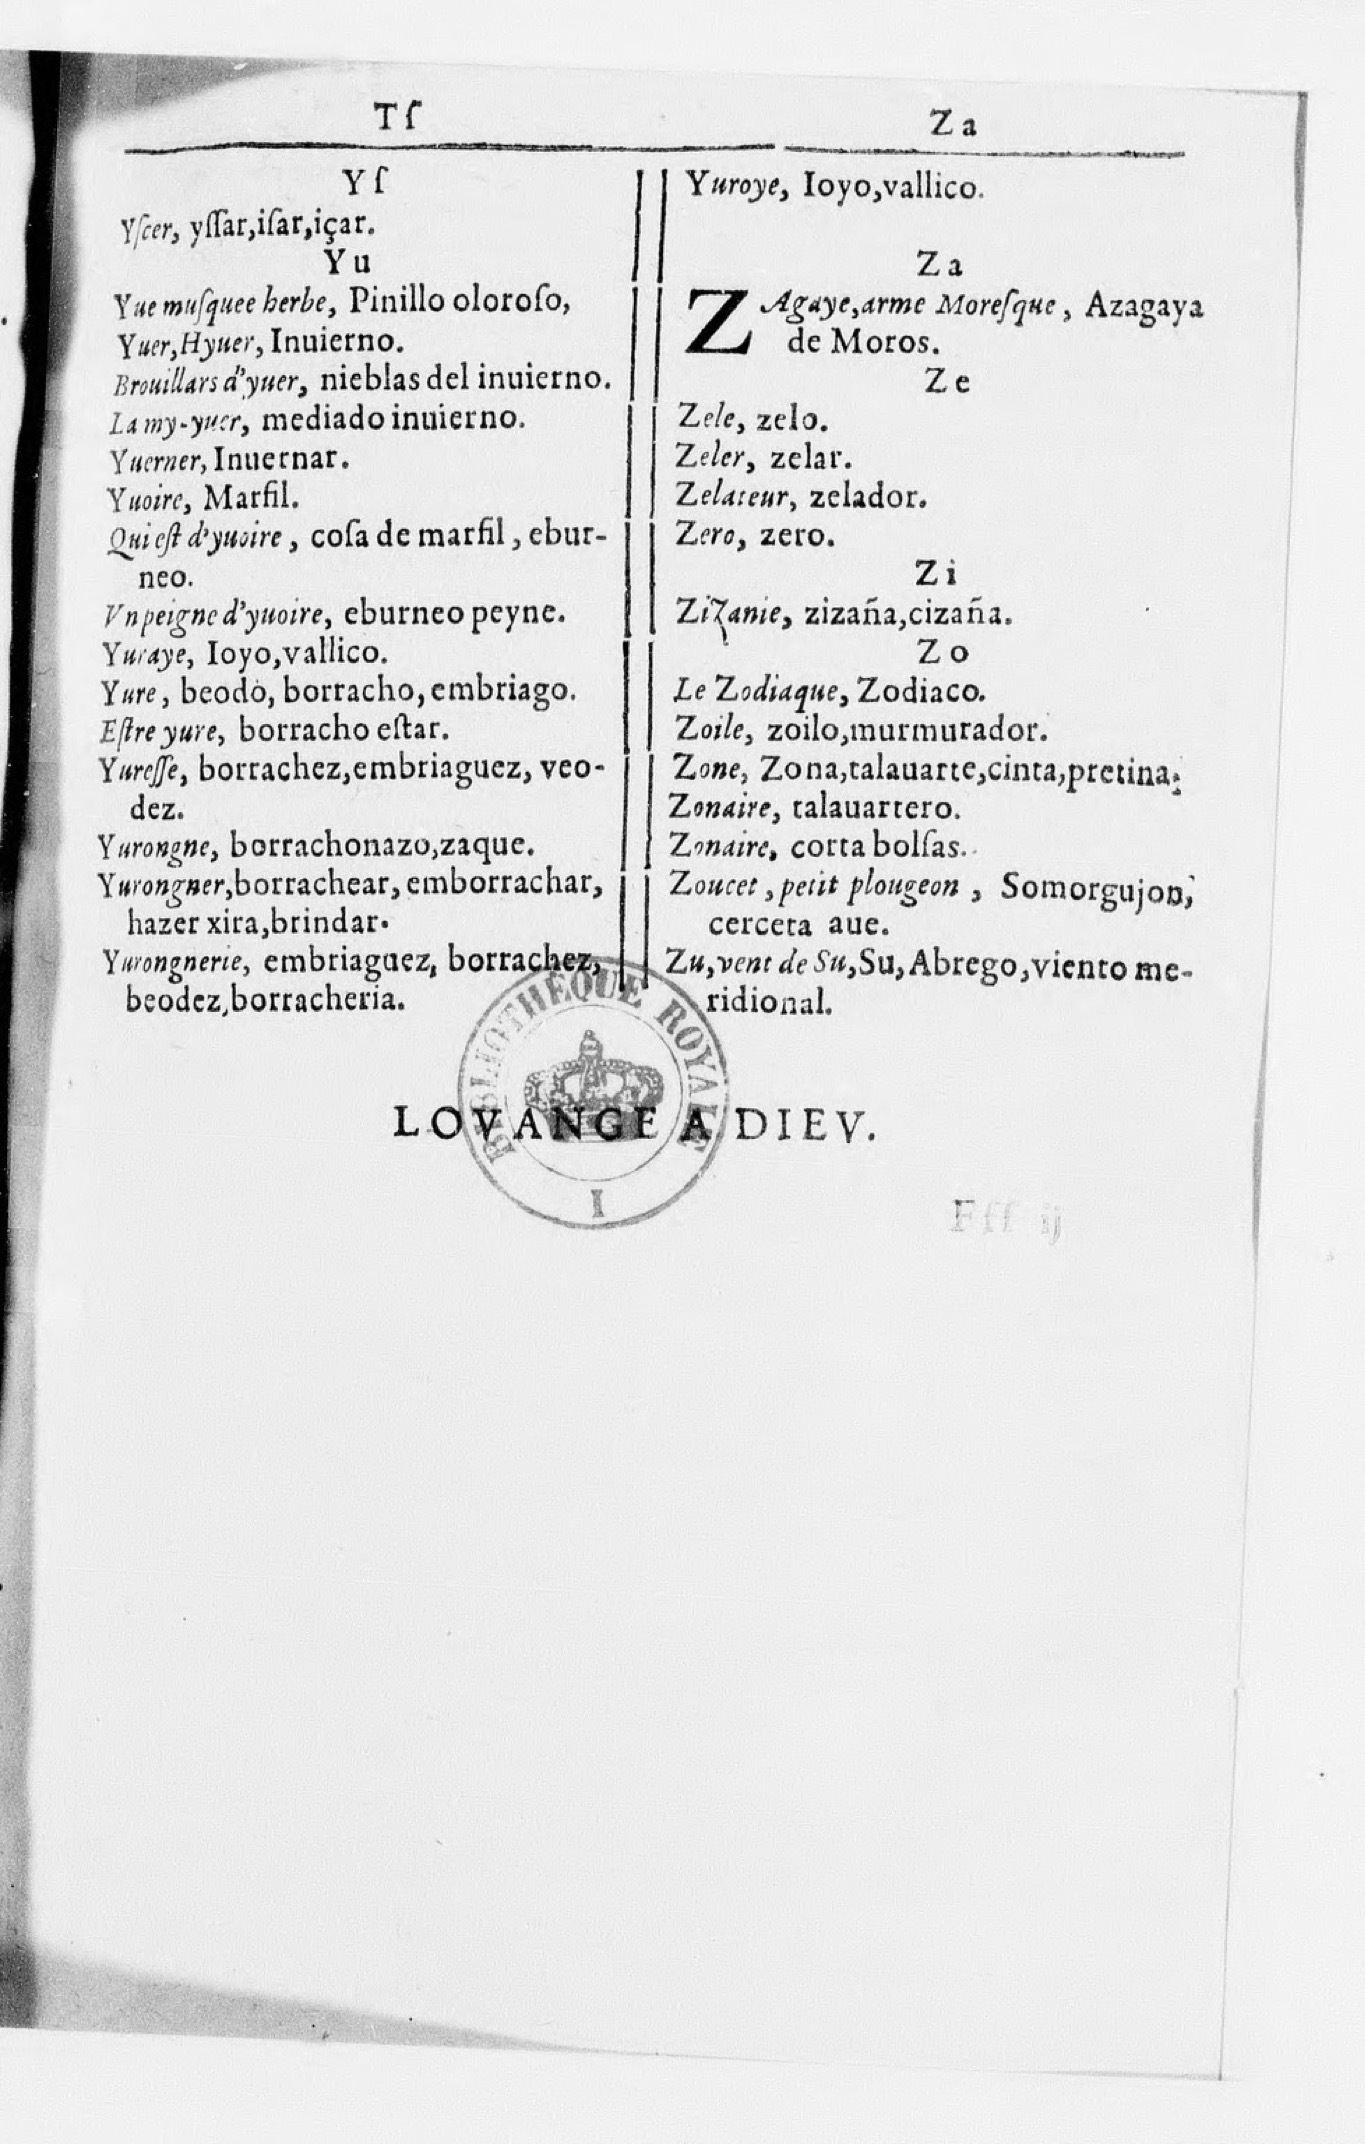 Tſ
Za
Yſ
Yſcer, yſſar,iſar,içar.
Yu
Yue muſquee herbe, Pinillo oloroſo,
Yuer,Hyuer, Inuierno.
Brouillars d'yuer, nieblas del inuierno.
La my-yuer, mediado inuierno.
Yuerner, Inuernar.
Yuoire, Marfil.
Qui eſt d'yuoire, coſa de marfil, ebur-
neo.
Vn peigne d'yuoire, eburneo peyne.
Yuraye, Ioyo,vallico.
Yure, beodò, borracho, embriago.
Eſtre yure, borracho eſtar.
Yureſſe, borrachez,embriaguez, veo-
dez.
Yurongne, borrachonazo,zaque.
Yurongner,borrachear, emborrachar,
hazer xira,brindar.
Yurongnerie, embriaguez, borrachez,
beodez,borracheria.
Yuroye, Ioyo,vallico.
Za
ZAgaye,arme Moreſque, Azagaya
de Moros.
Ze
Zele, zelo.
Zeler, zelar.
Zelateur, zelador.
Zero, zero.
Zi
Zizanie, zizaña,cizaña.
Zo
Le Zodiaque, Zodiaco.
Zoile, zoilo,murmurador.
Zone, Zona,talauarte,cinta,pretina.
Zonaire, talauartero.
Zonaire, corta bolſas.
Zoucet, petit plougeon, Somorgujon,
cerceta aue.
Zu,vent de Su,Su,Abrego,viento me-
ridional.
BIBLIOTHÈQUE ROYALE
I
LOVANGE A DIEV.
Fff ij